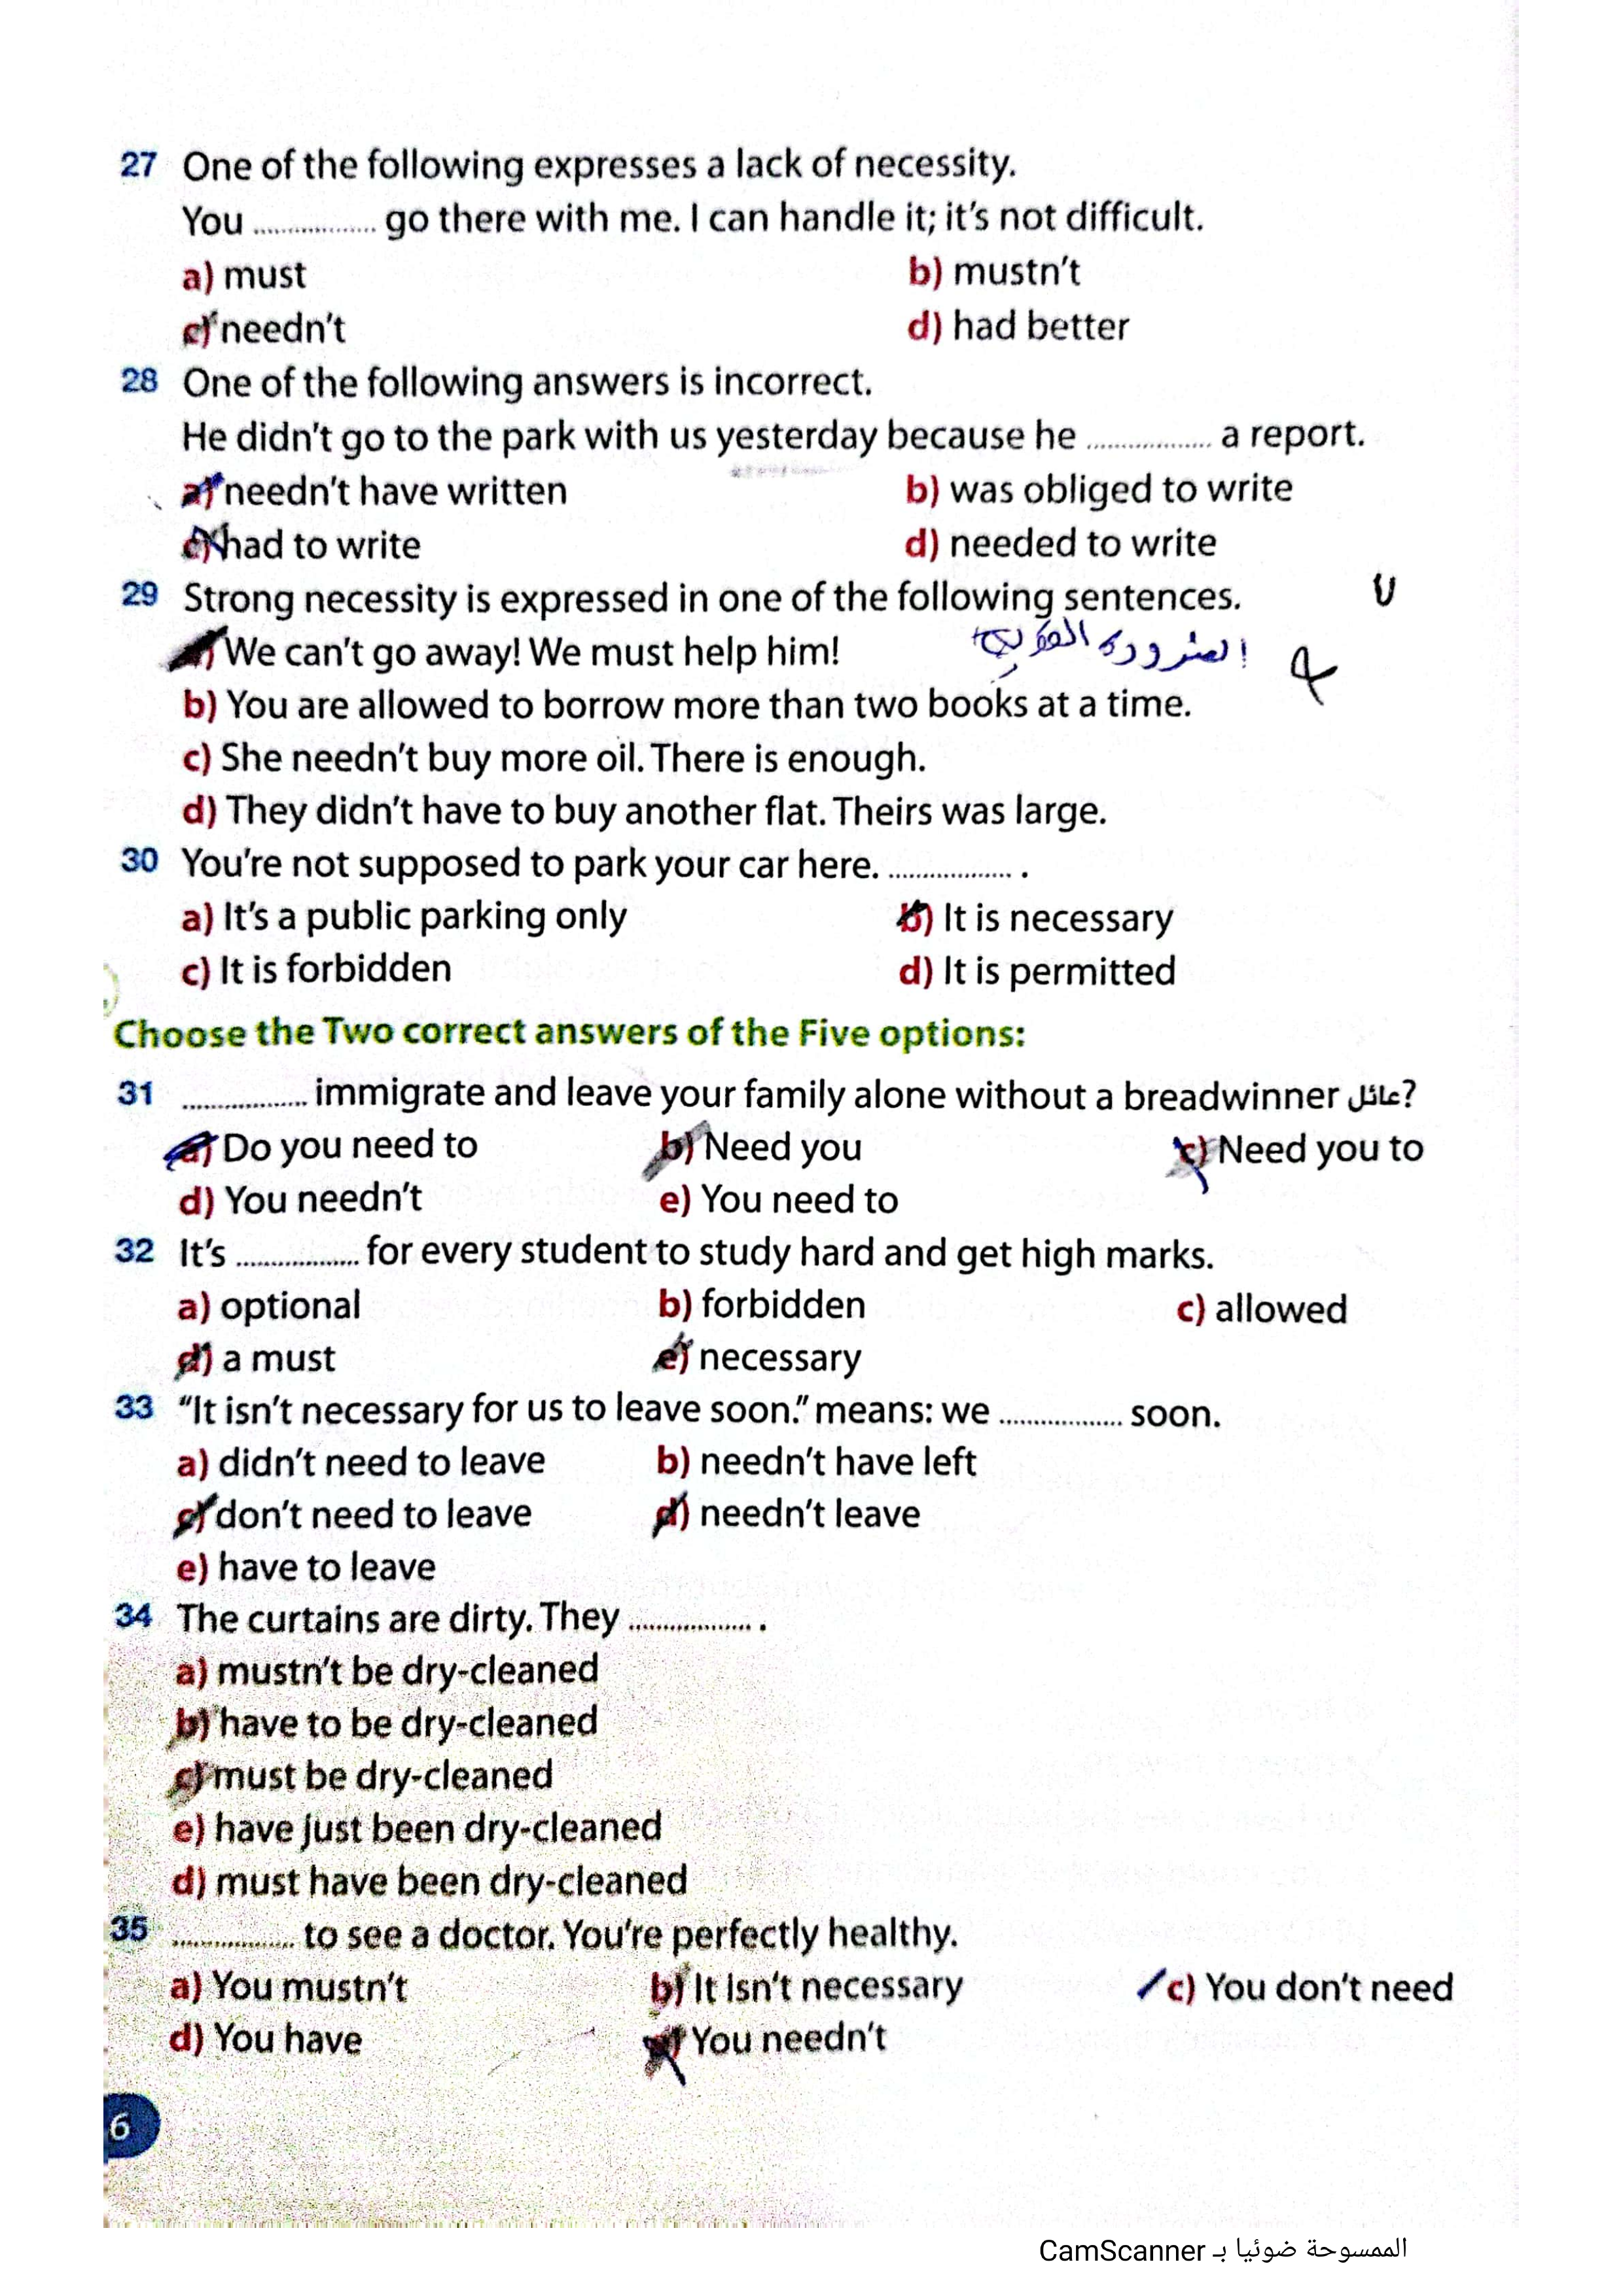 27 One of the following expresses a lack of necessity.
You ................ go there with me. I can handle it; it's not difficult.
a) must b) mustn't
c) needn't d) had better
28 One of the following answers is incorrect.
He didn't go to the park with us yesterday because he ................ a report.
a) needn't have written b) was obliged to write
c) had to write d) needed to write
29 Strong necessity is expressed in one of the following sentences.
a) We can't go away! We must help him!
الضرورة القوية
b) You are allowed to borrow more than two books at a time.
c) She needn't buy more oil. There is enough.
d) They didn't have to buy another flat. Theirs was large.
30 You're not supposed to park your car here. ................ .
a) It's a public parking only b) It is necessary
c) It is forbidden d) It is permitted
Choose the Two correct answers of the Five options:
31 ................ immigrate and leave your family alone without a breadwinner عائل?
a) Do you need to b) Need you c) Need you to
d) You needn't e) You need to
32 It's ................ for every student to study hard and get high marks.
a) optional b) forbidden c) allowed
d) a must e) necessary
33 "It isn't necessary for us to leave soon." means: we ................ soon.
a) didn't need to leave b) needn't have left
c) don't need to leave d) needn't leave
e) have to leave
34 The curtains are dirty. They ................ .
a) mustn't be dry-cleaned
b) have to be dry-cleaned
c) must be dry-cleaned
e) have just been dry-cleaned
d) must have been dry-cleaned
35 ................ to see a doctor. You're perfectly healthy.
a) You mustn't b) It isn't necessary c) You don't need
d) You have e) You needn't
6
الممسوحة ضوئيا بـ CamScanner